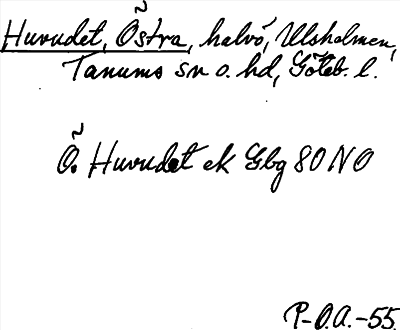 Huvudet, Östra, halvö, Ulsholmen,
Tanums sn o. hd, Göteb. l.
Ö. Huvudet ek Gbg 80 NO
P-O.A.-55.